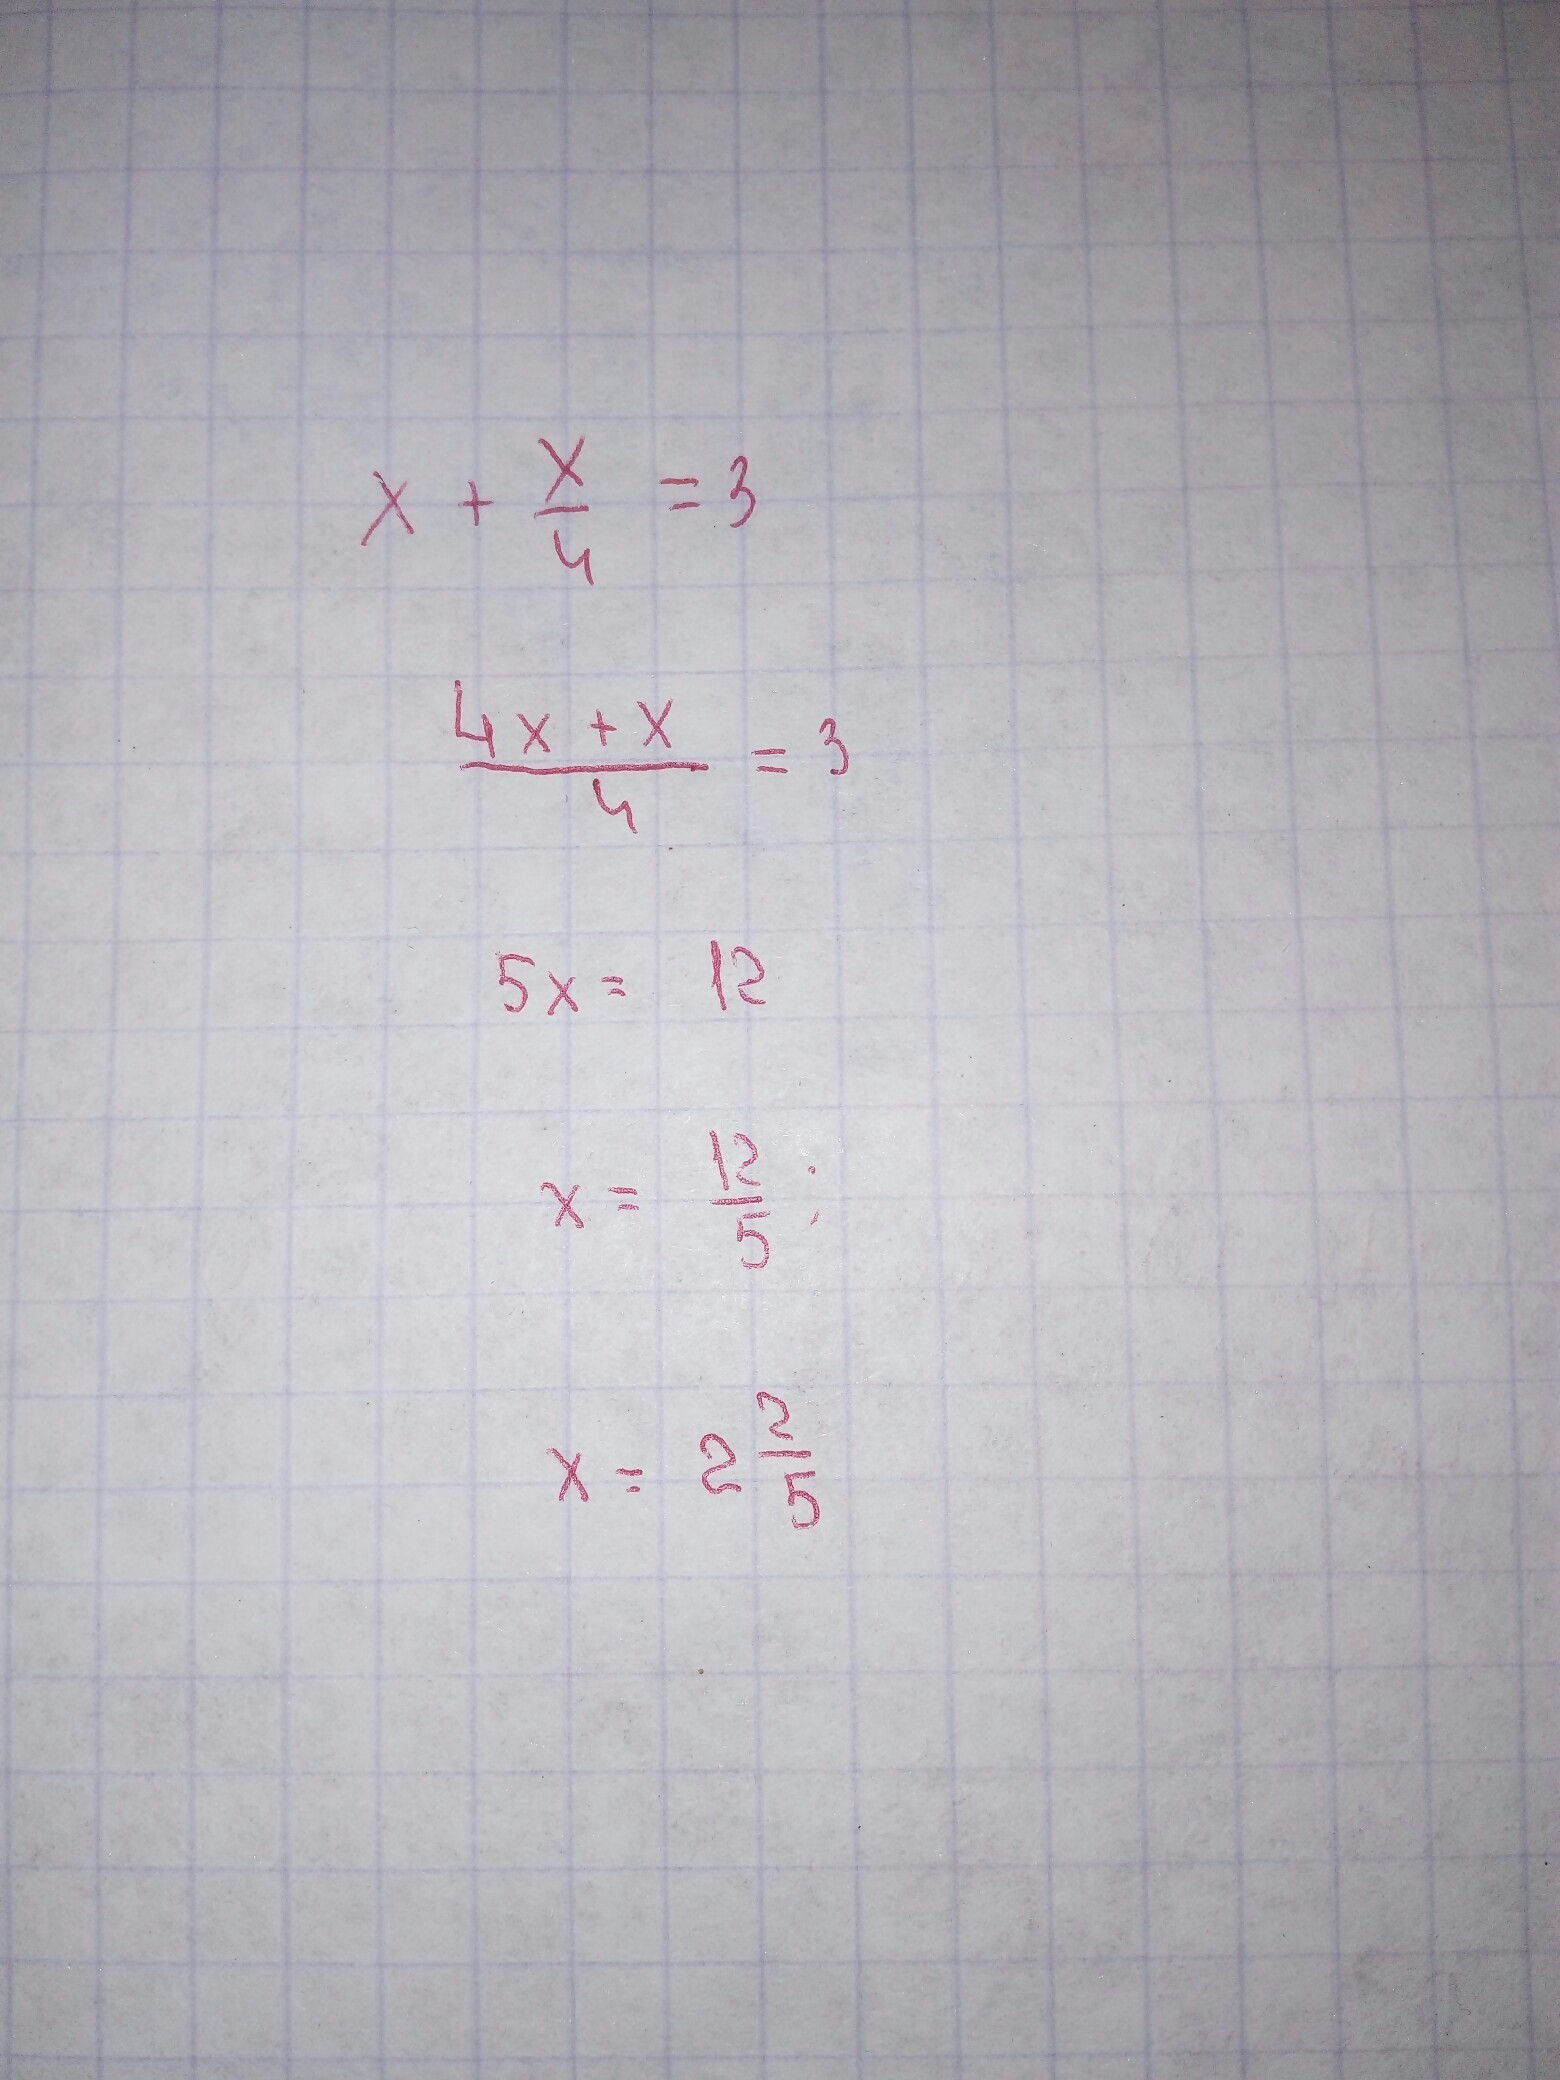 x + x/4 = 3
4x + x/4 = 3
5x = 12
x = 12/5;
x = 2 2/5